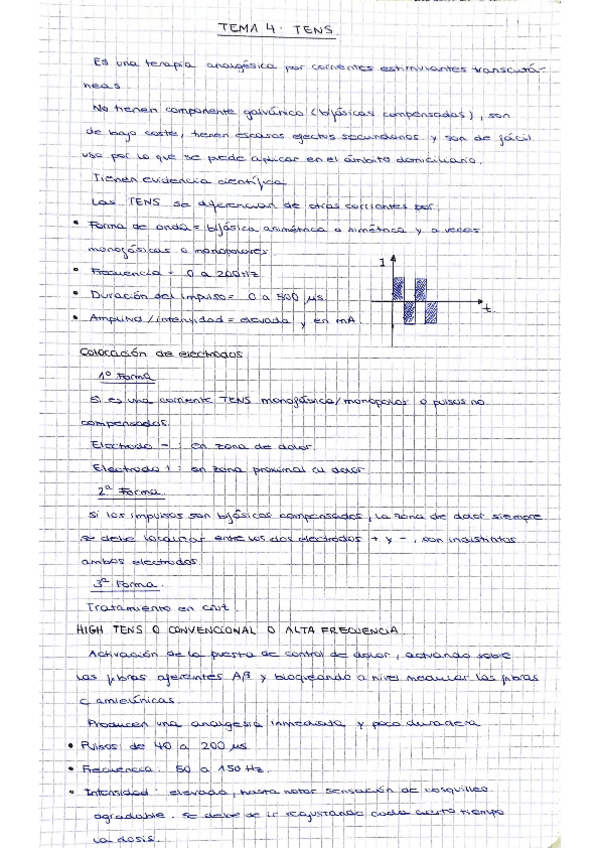 TEMA 4: TENS.
Es una terapia analgésica por corrientes estimulantes transcutá-
neas.
No tienen componente galvánico (bifásicas compensadas), son
de bajo coste, tienen escasos efectos secundarios y son de fácil
uso por lo que se puede aplicar en el ámbito domiciliario.
Tienen evidencia científica.
Las TENS se diferencian de otras corrientes por:
• Forma de onda = bifásica asimétrica o simétrica y a veces
monofásicas o monopolares.
• Frecuencia = 0 a 200Hz.
• Duración del impulso = 0 a 500 µs.
• Amplitud / intensidad = elevada y en mA.
I
t.
Colocación de electrodos
1º Forma
Si es una corriente TENS monofásica/monopolar o pulsos no
compensados.
Electrodo - : en zona de dolor.
Electrodo + : en zona proximal al dolor.
2ª Forma.
Si los impulsos son bifásicos compensados, la zona de dolor siempre
se debe localizar entre los dos electrodos + y -, son indistintos
ambos electrodos.
3ª Forma.
Tratamiento en
HIGH TENS O CONVENCIONAL O ALTA FRECUENCIA
Activación de la puerta de control de dolor, actuando sobre
las fibras aferentes Aβ y bloqueando a nivel medular las fibras
C amielínicas.
Producen una analgesia inmediata y poco duradera
• Pulsos de 40 a 200 µs
• Frecuencia: 50 a 150 Hz.
• Intensidad: elevada, hasta notar sensación de cosquilleo
agradable. Se debe de ir reajustando cada cierto tiempo
la dosis.